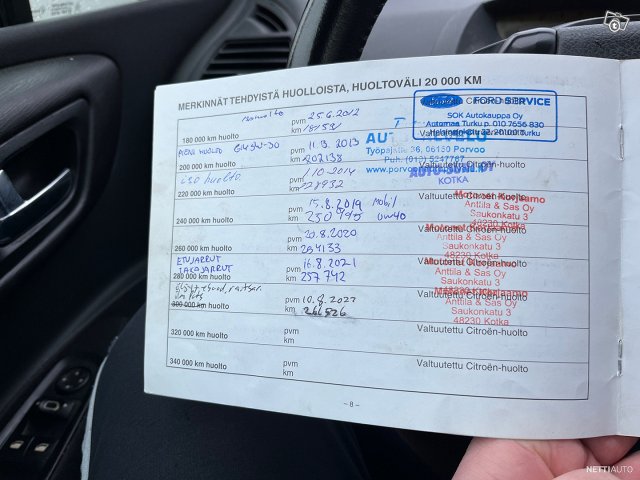 MERKINNÄT TEHDYISTÄ HUOLLOISTA, HUOLTOVÄLI 20 000 KM
180 000 km huolto
pvm 25.6.2012
km 181591
Ford FORD SERVICE
SOK Autokauppa Oy
Automaa Turku p. 010 7656 830
PIENI HUOLTO 5W-30
200 000 km huolto
pvm 11.9.2013
km 202138
Työpajatie 36, 06150 Porvoo
Puh. (019) 5247767
Valtuutettu Citroën-huolto
220 000 km huolto
pvm 1/10 2014
km 228932
KOTKA
Valtuutettu Citroën-huolto
240 000 km huolto
pvm 15.8.2019 Mobil
km 250995 0W40
Anttila & Sas Oy
Saukonkatu 3
48230 Kotka
260 000 km huolto
pvm 20.8.2020
km 254133
Anttila & Sas Oy
Saukonkatu 3
48230 Kotka
ETUJARRUT
TAKAJARRUT
280 000 km huolto
pvm 16.8.2021
km 257742
Anttila & Sas Oy
Saukonkatu 3
48230 Kotka
300 000 km huolto
pvm 10.9.2022
Anttila & Sas Oy
Saukonkatu 3
48230 Kotka
320 000 km huolto
pvm
km
Valtuutettu Citroën-huolto
340 000 km huolto
pvm
km
Valtuutettu Citroën-huolto
– 8 –
NETTIAUTO